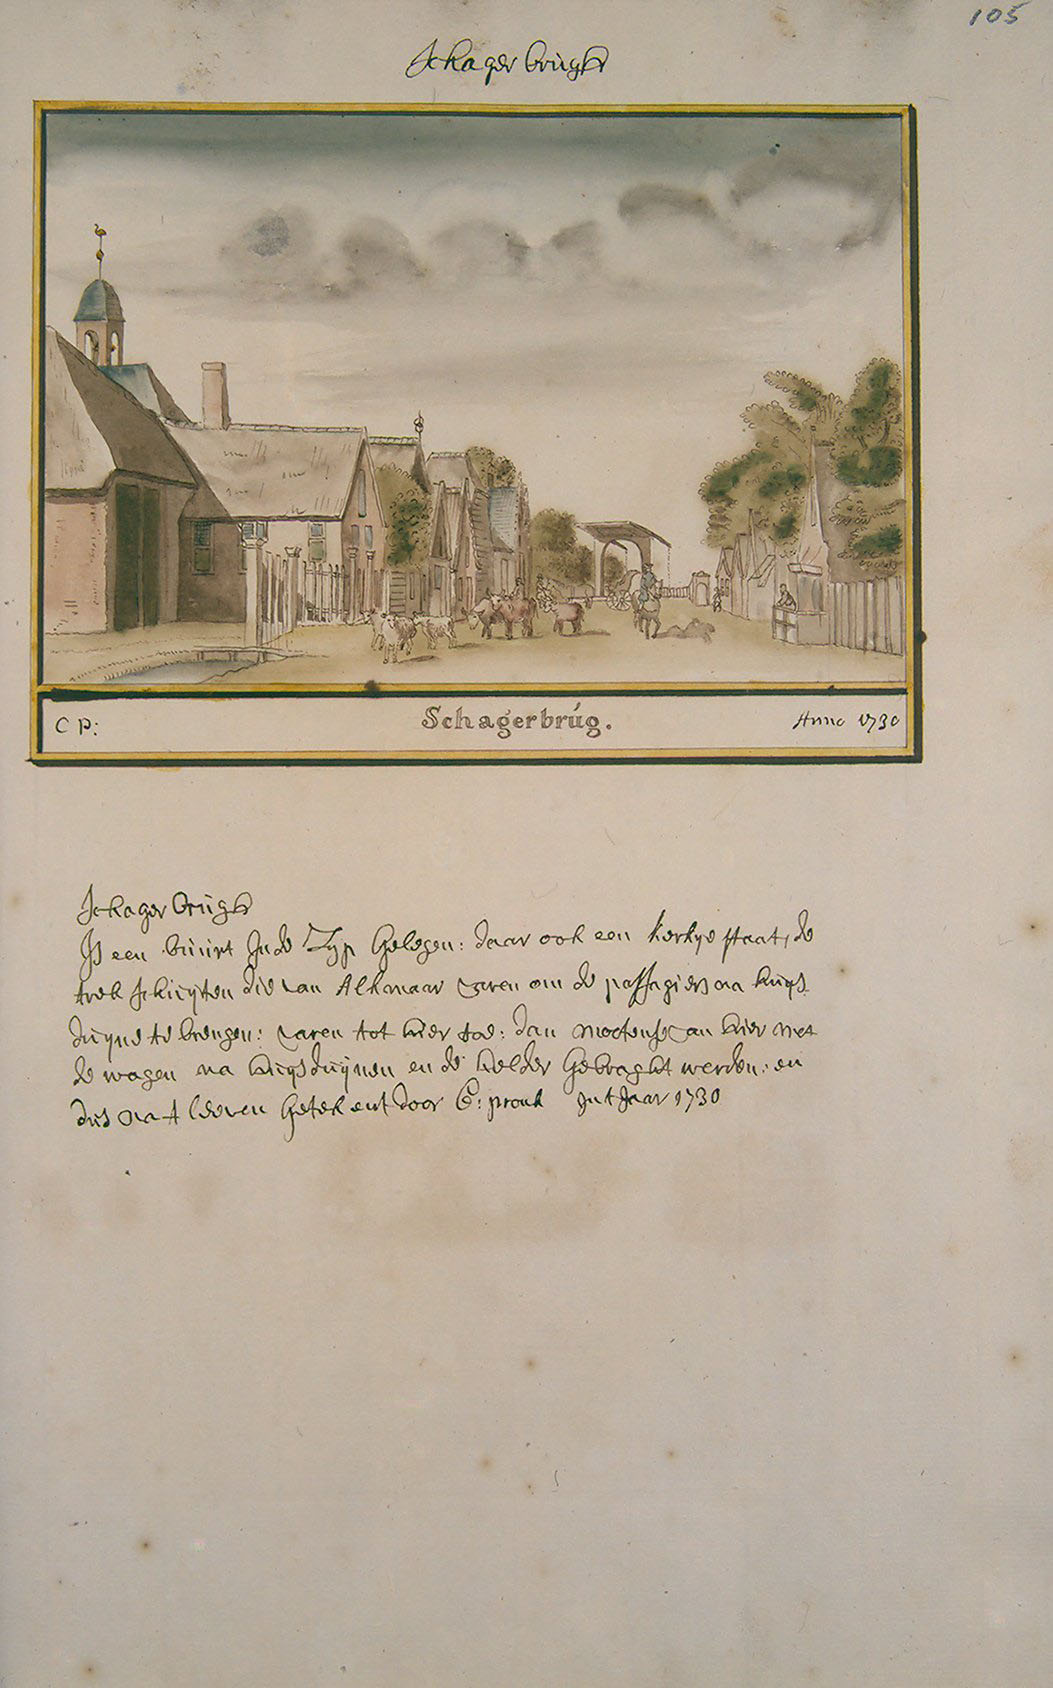 105
Schager brugh
C P:
Schagerbrúg.
Anno 1730
Schager brugh
Is een buurt In de Zyp Gelegen: daar ook een kerkye staat, de
trek schuyten die van Alkmaar varen om de passagiers na huys
duyne te brengen: varen tot hier toe: dan moetense van hier met
de wagen na huysduynen en de helder Gebraght werden: en
dus na t leeven Getekent door C: pronk In t Jaar 1730